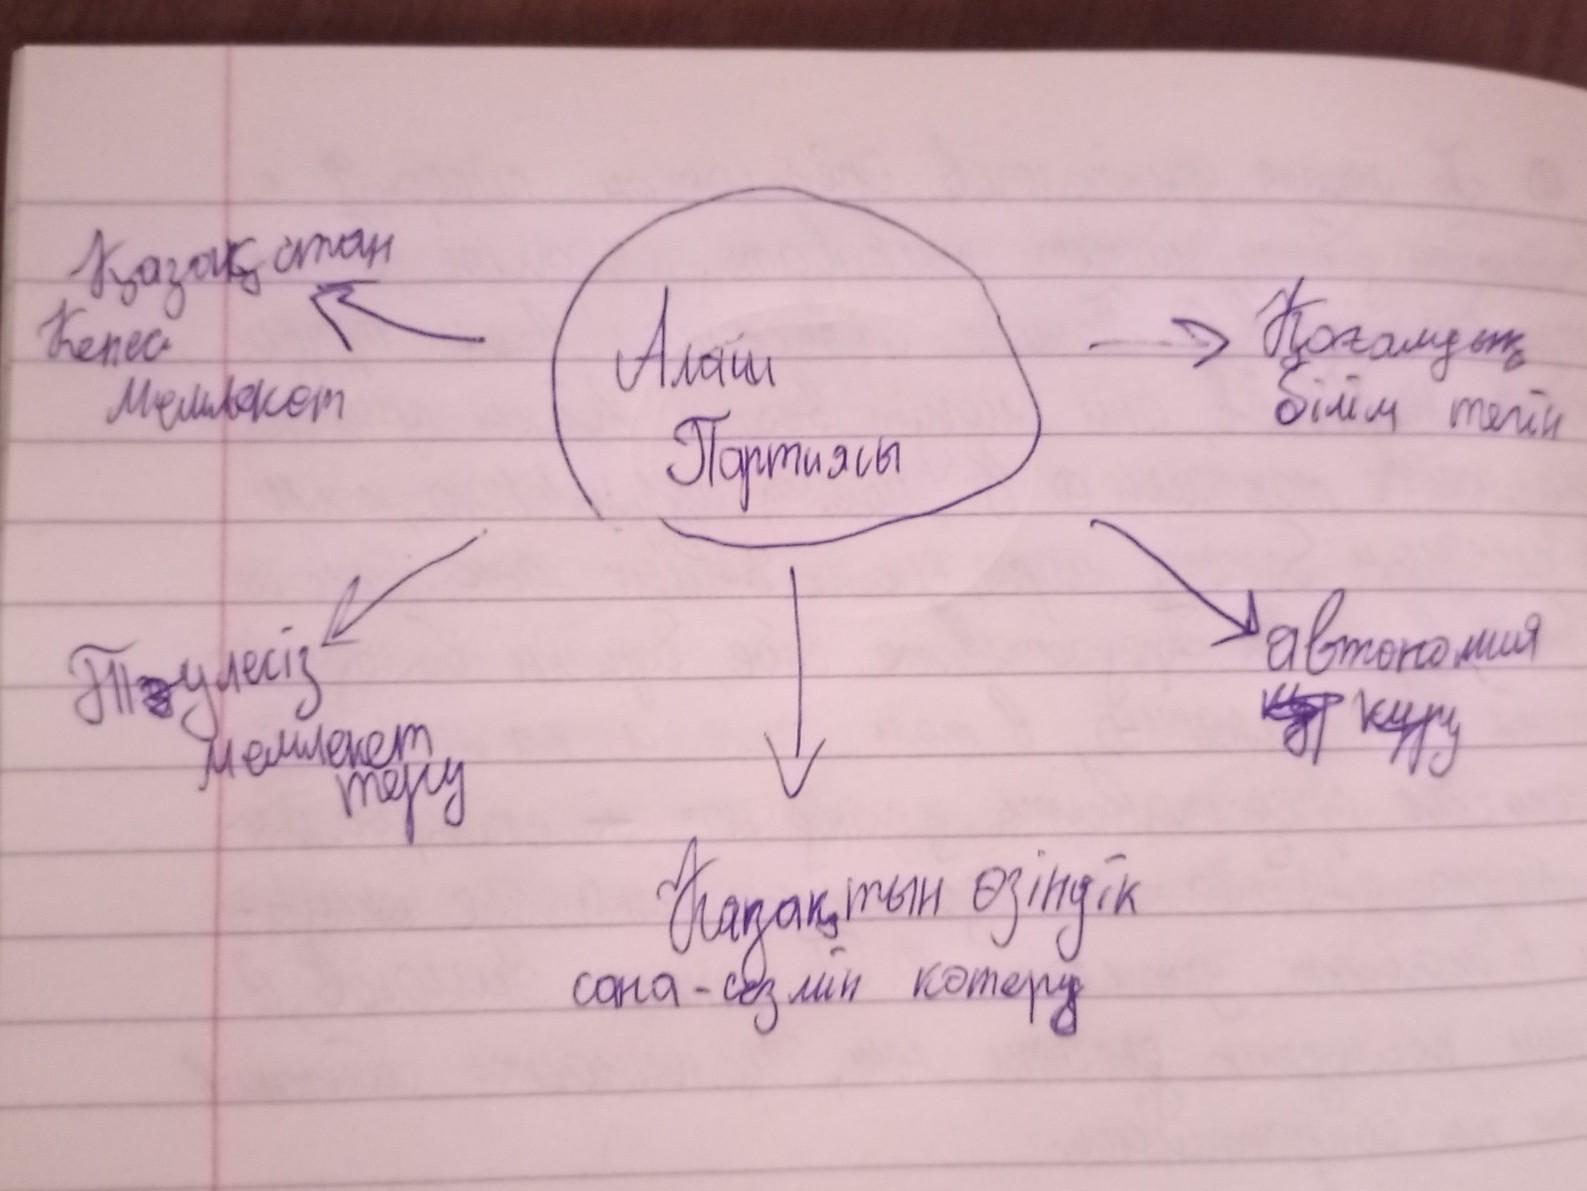 Алаш
Партиясы
Қазақстан
Кепес
Мемлекет
Қоғамдық
білім тегін
Тәулесіз
мемлекет
теру
автономия
куру
Казақтын өзіндік
сана-сезмін котеру